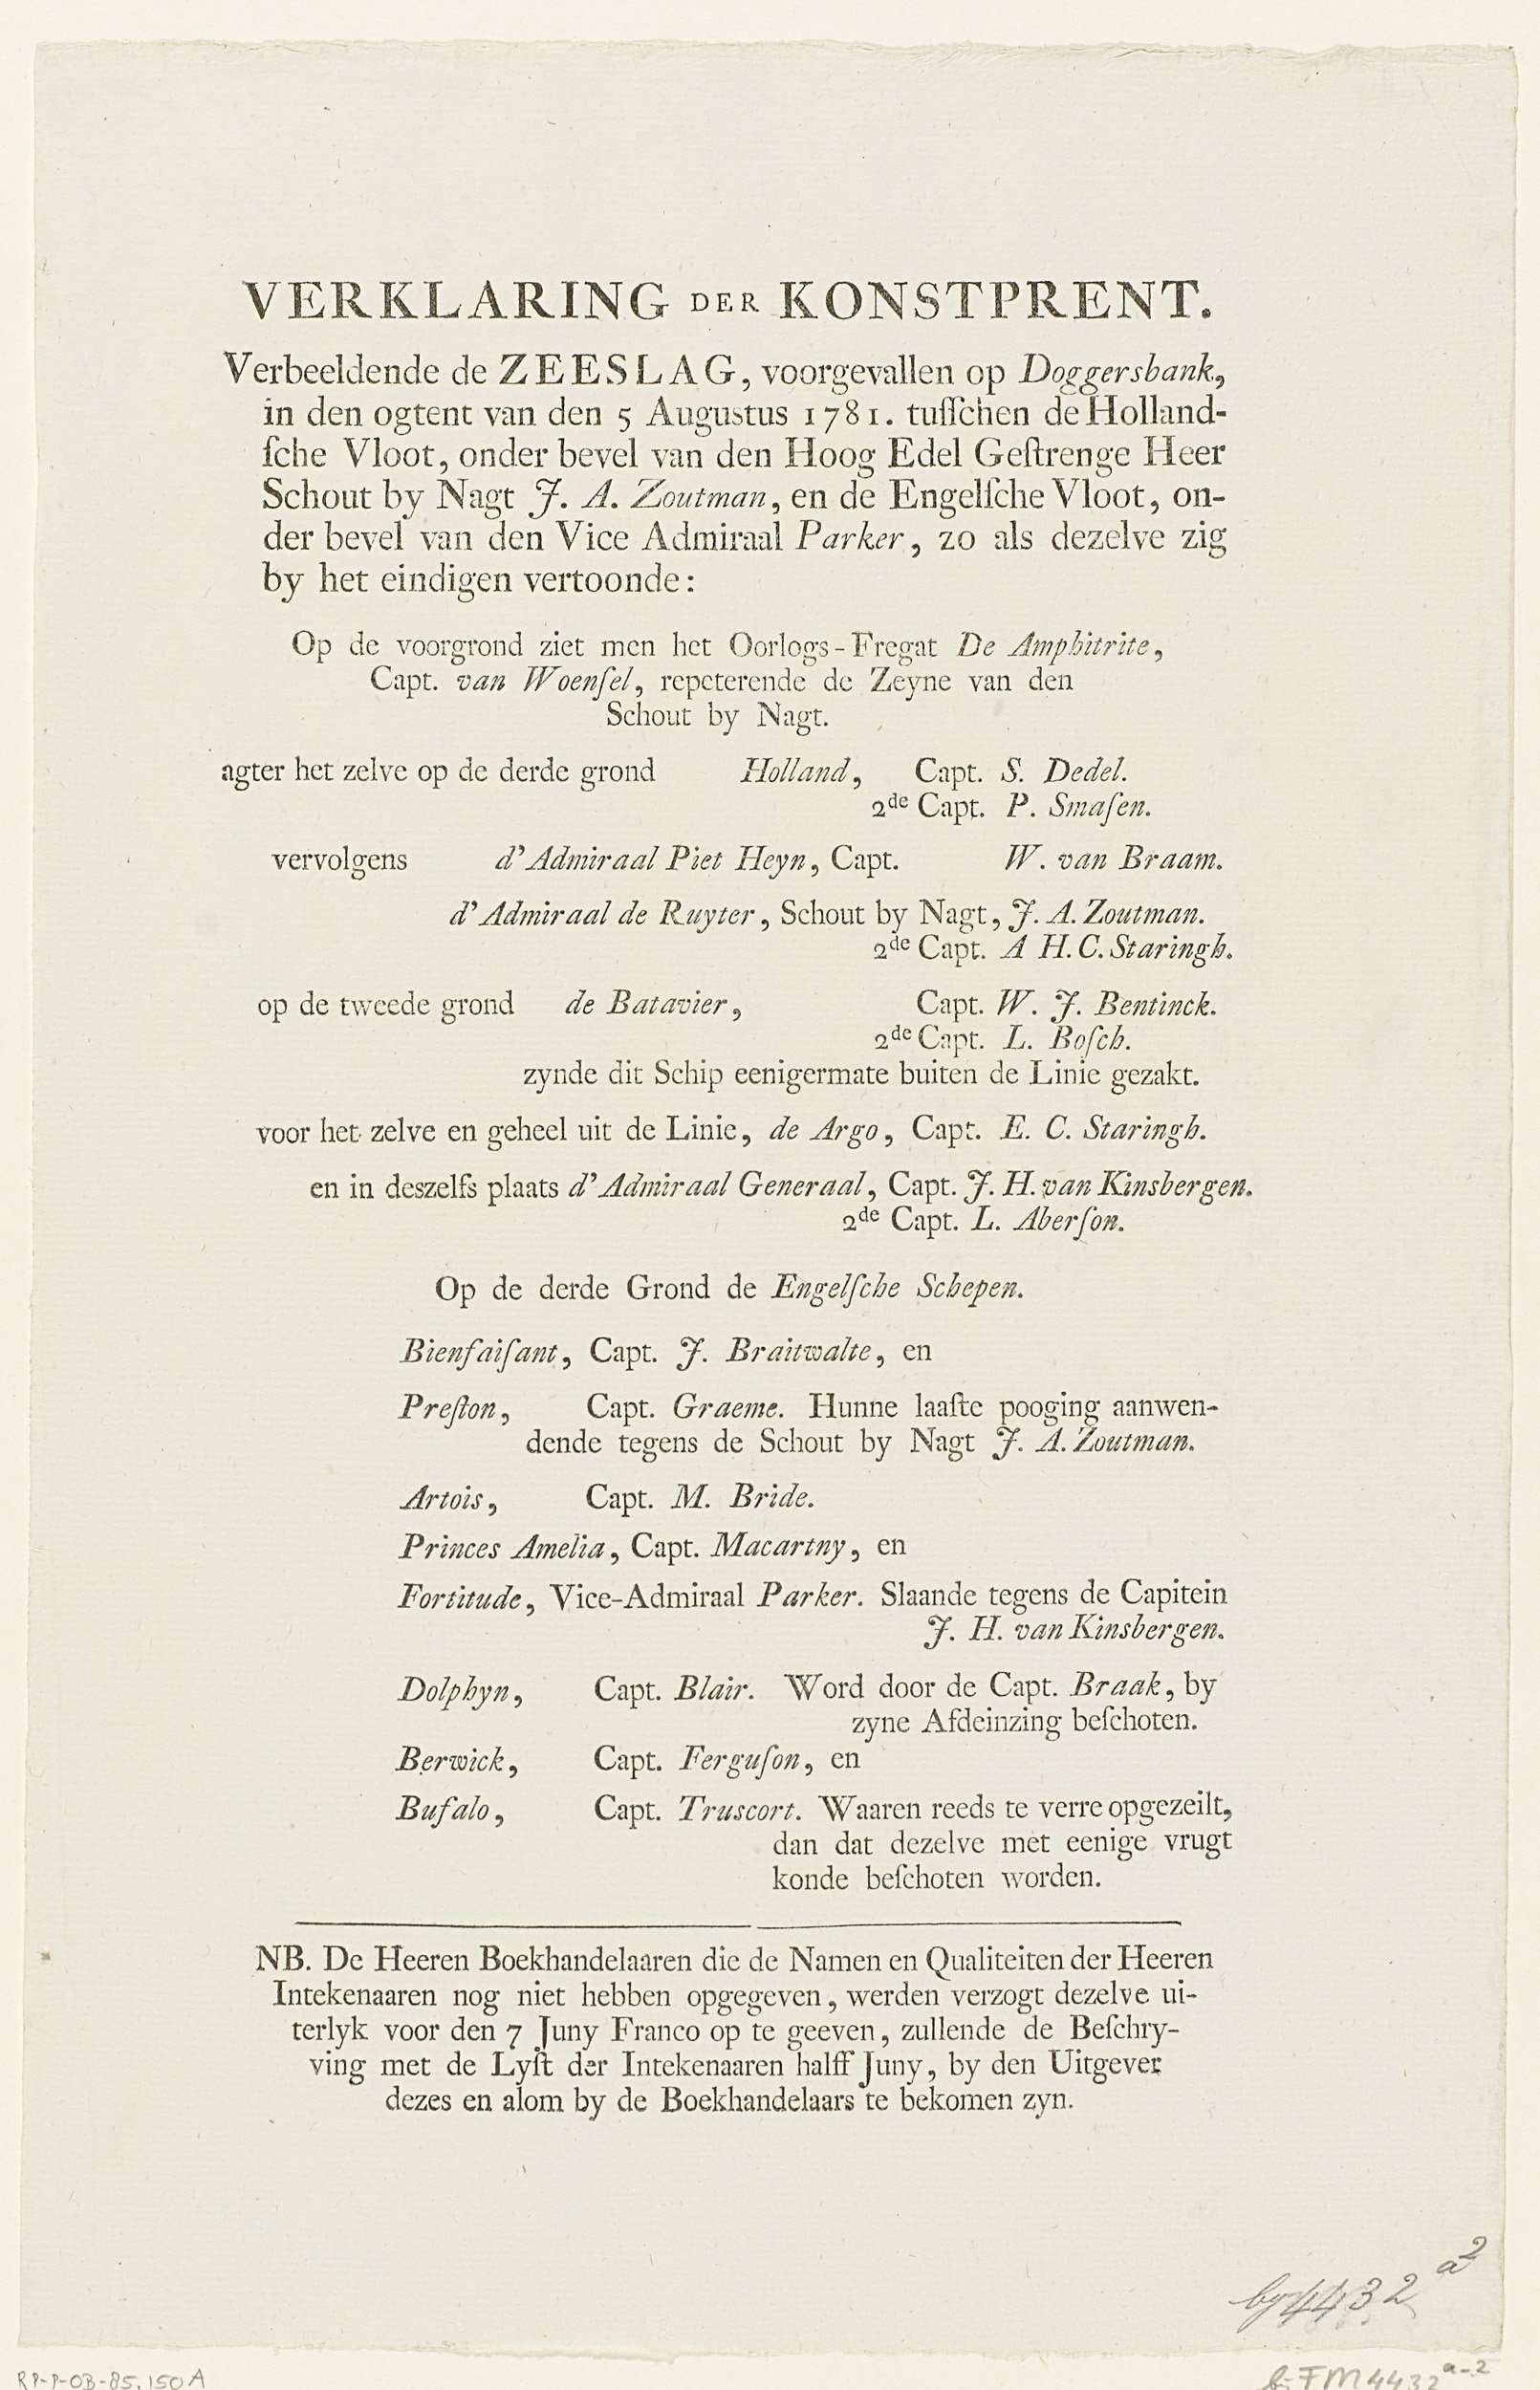 VERKLARING DER KONSTPRENT.
Verbeeldende de ZEESLAG, voorgevallen op Doggersbank,
in den ogtent van den 5 Augustus 1781. tusſchen de Holland-
ſche Vloot, onder bevel van den Hoog Edel Geſtrenge Heer
Schout by Nagt J. A. Zoutman, en de Engelſche Vloot, on-
der bevel van den Vice Admiraal Parker, zo als dezelve zig
by het eindigen vertoonde:
Op de voorgrond ziet men het Oorlogs-Fregat De Amphitrite,
Capt. van Woenſel, repeterende de Zeyne van den
Schout by Nagt.
agter het zelve op de derde grond Holland, Capt. S. Dedel.
2de Capt. P. Smaſen.
vervolgens d'Admiraal Piet Heyn, Capt. W. van Braam.
d'Admiraal de Ruyter, Schout by Nagt, J. A. Zoutman.
2de Capt. A H. C. Staringh.
op de tweede grond de Batavier, Capt. W. J. Bentinck.
2de Capt. L. Boſch.
zynde dit Schip eenigermate buiten de Linie gezakt.
voor het zelve en geheel uit de Linie, de Argo, Capt. E. C. Staringh.
en in deszelfs plaats d'Admiraal Generaal, Capt. J. H. van Kinsbergen.
2de Capt. L. Aberſon.
Op de derde Grond de Engelſche Schepen.
Bienfaiſant, Capt. J. Braitwalte, en
Preſton, Capt. Graeme. Hunne laaſte pooging aanwen-
dende tegens de Schout by Nagt J. A. Zoutman.
Artois, Capt. M. Bride.
Princes Amelia, Capt. Macartny, en
Fortitude, Vice-Admiraal Parker. Slaande tegens de Capitein
J. H. van Kinsbergen.
Dolphyn, Capt. Blair. Word door de Capt. Braak, by
zyne Afdeinzing beſchoten.
Berwick, Capt. Ferguſon, en
Bufalo, Capt. Truscort. Waaren reeds te verre opgezeilt,
dan dat dezelve met eenige vrugt
konde beſchoten worden.
NB. De Heeren Boekhandelaaren die de Namen en Qualiteiten der Heeren
Intekenaaren nog niet hebben opgegeven, werden verzogt dezelve ui-
terlyk voor den 7 Juny Franco op te geeven, zullende de Beſchry-
ving met de Lyſt der Intekenaaren halff Juny, by den Uitgever
dezes en alom by de Boekhandelaars te bekomen zyn.
by 4432 a2
RP-P-OB-85.150A
b FM 4432 a-2